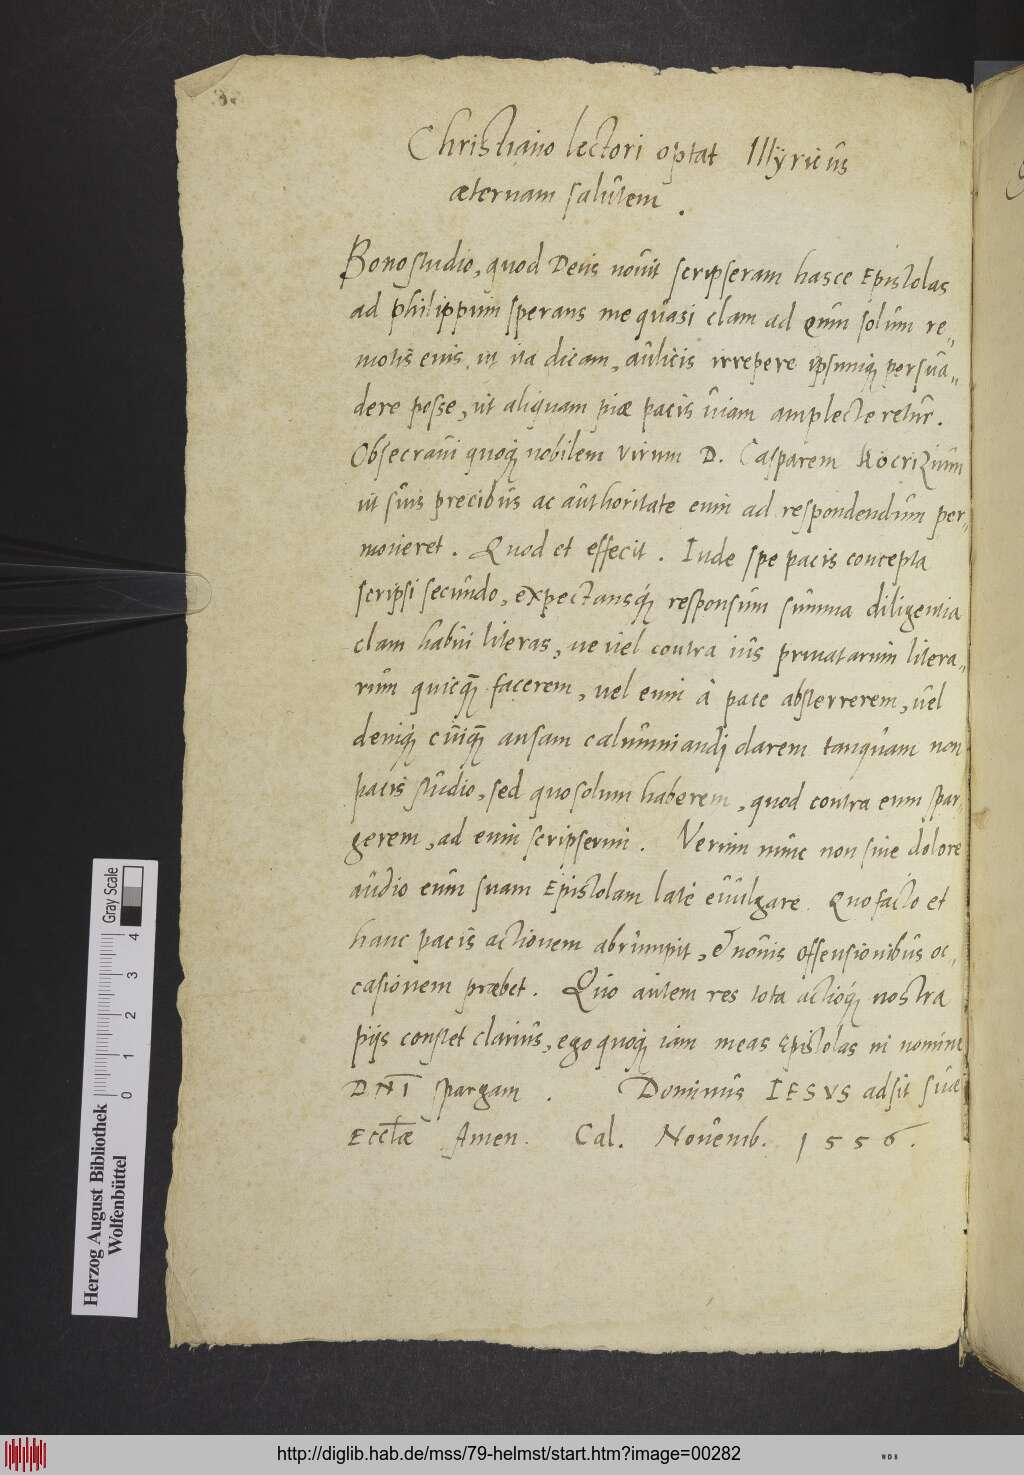 Christiano lectori optat Illyricus
æternam salutem.
Bono studio, quod Deus novit scripseram hasce Epistolas
ad philippum sperans me quasi clam ad eum solum re„
motis eius, ut ita dicam, aulicis irrepere ipsumq́ persua„
dere posse, ut aliquam piæ pacis uiam amplecteretur.
Obsecraui quoq́ nobilem virum D. Casparem
ut suis precibus ac authoritate eum ad respondendum per„
moueret. Quod et effecit. Inde spe pacis concepta
scripsi secundo, expectansq́ responsum summa diligentia
clam habui literas, ne uel contra ius priuatarum litera„
rum quicq̄ facerem, uel eum à pace absterrerem, uel
deniq́ cuiq̄ ansam calumniandi darem tanquam non
pacis studio, sed quo solum haberem, quod contra eum spar„
gerem, ad eum scripserim. Verum nunc non sine dolore
audio eum suam Epistolam late euulgare. Quo facto et
hanc pacis actionem abrumpit, et nouis offensionibus oc„
casionem præbet. Quo autem res tota actioq́ nostra
pijs constet clarius, ego quoq́ iam meas Epistolas in nomine
DNI spargam. Dominus IESVS adsit suæ
Eccłæ Amen. Cal. Nouemb. 1556.
Herzog August Bibliothek
Wolfenbüttel
0 1 2 3 4
Gray Scale
http://diglib.hab.de/mss/79-helmst/start.htm?image=00282